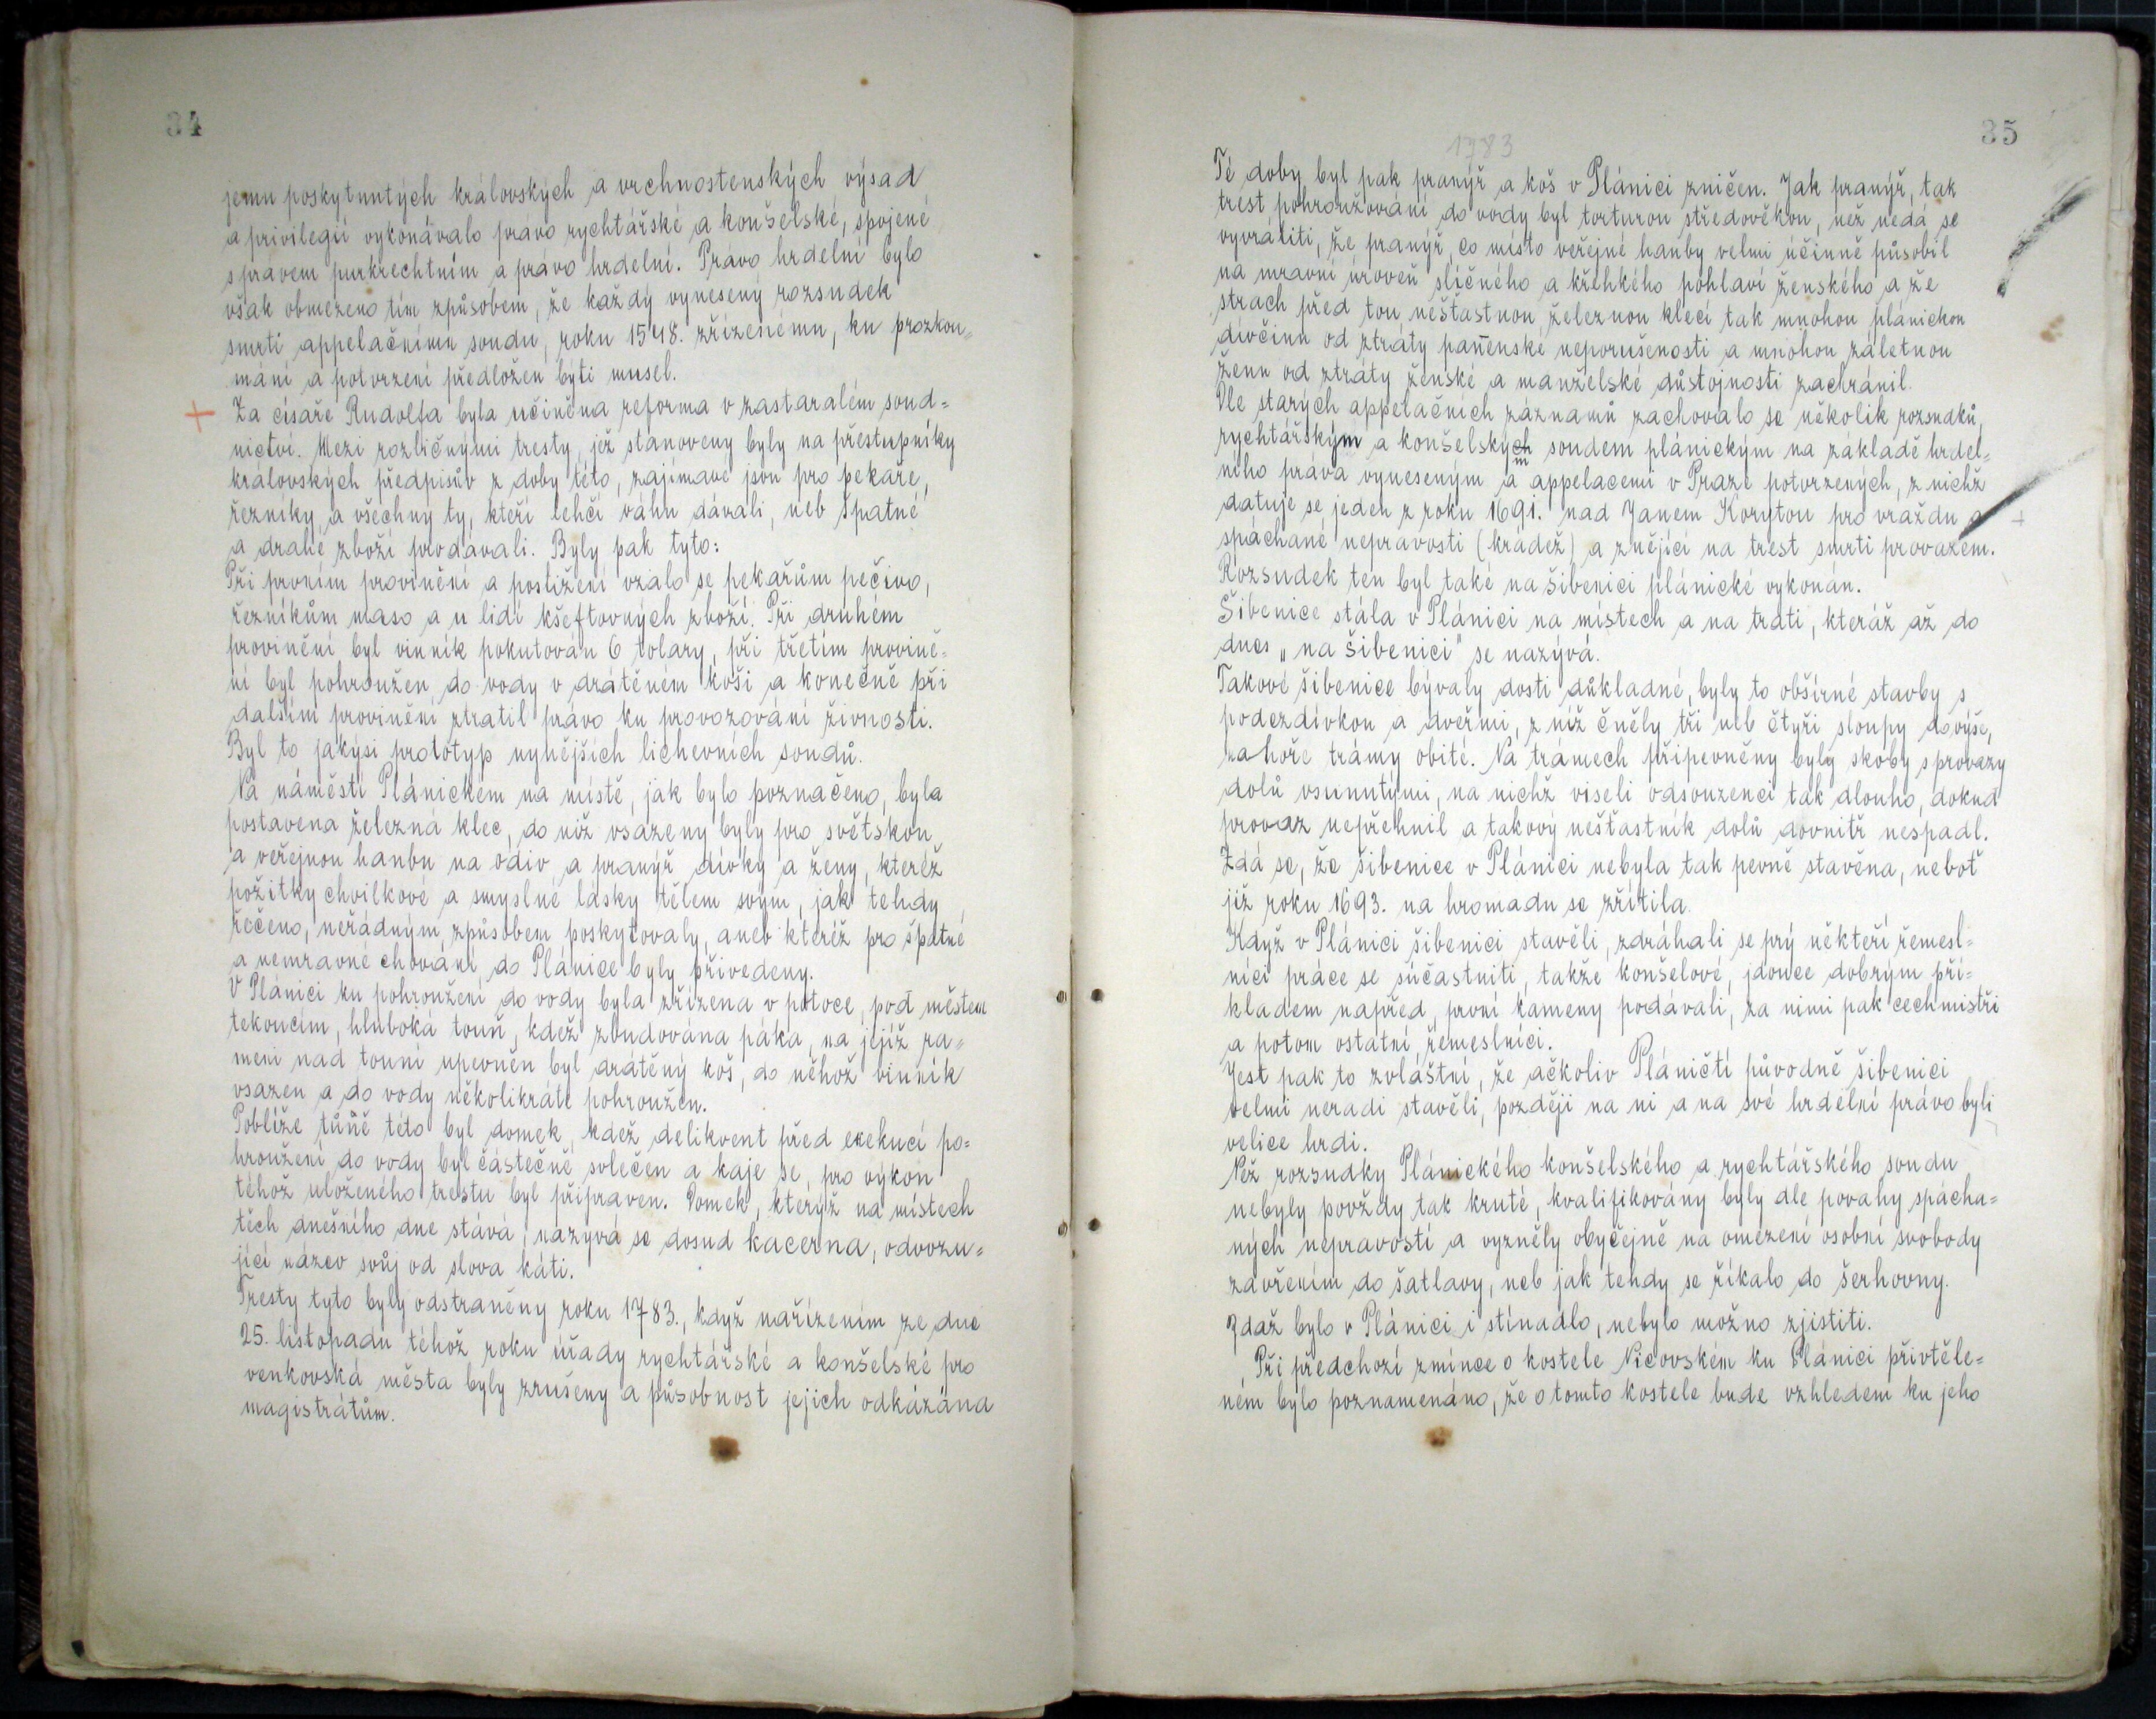 34
jemu poskytnutých královských a vrchnostenských výsad
a privilegií vykonávalo právo rychtářské a konšelské, spojené
s právem purkrechtním a právo hrdelní. Právo hrdelní bylo
však obmezeno tím způsobem, že každý vynesený rozsudek
smrti appelačnímu soudu, roku 1548. zřízenému, ku prozkou=
mání a potvrzení předložen býti musel.
+ Za císaře Rudolfa byla učiněna reforma v zastaralém soud=
nictví. Mezi rozličnými tresty, jež stanoveny byly na přestupníky
královských předpisův z doby této, zajímavé jsou pro pekaře,
řezníky, a všechny ty, kteří lehčí váhu dávali, neb špatné
a drahé zboží prodávali. Byly pak tyto:
Při prvním provinění a postižení vzalo se pekařům pečivo,
řezníkům maso a u lidí kšeftovných zboží. Při druhém
provinění byl vinník pokutován 6 tolary, při třetím provině=
ní byl pohroužen do vody v drátěném koši a konečně při
dalším provinění ztratil právo ku provozování živnosti.
Byl to jakýsi prototyp nynějších lichevních soudů.
Na náměstí Plánickém na místě, jak bylo poznačeno, byla
postavena železná klec, do níž vsazeny byly pro světskou
a veřejnou hanbu na odiv a pranýř dívky a ženy, kteréž
požitky chvilkové a smyslné lásky tělem svým, jak tehdy
řečeno, neřádným způsobem poskytovaly, aneb kteréž pro špatné
a nemravné chování do Plánice byly přivedeny.
V Plánici ku pohroužení do vody byla zřízena v potoce, pod městem
tekoucím, hluboká touň, kdež zbudována páka, na jejíž ra=
meni nad touní upevněn byl drátěný koš, do něhož vinník
vsazen a do vody několikráte pohroužen.
Poblíže tůně této byl domek, kdež delikvent před exekucí po=
hroužení do vody byl částečně svlečen a kaje se, pro výkon
téhož uloženého trestu byl připraven. Domek, kterýž na místech
těch dnešního dne stává, nazývá se dosud kacerna, odvozu=
jící název svůj od slova káti.
Tresty tyto byly odstraněny roku 1783., když nařízením ze dne
25. listopadu téhož roku úřady rychtářské a konšelské pro
venkovská města byly zrušeny a působnost jejich odkázána
magistrátům.
35
1783
Té doby byl pak pranýř a koš v Plánici zničen. Jak pranýř, tak
trest pohroužování do vody byl torturou středověkou, než nedá se
vyvrátiti, že pranýř, co místo veřejné hanby velmi účinně působil
na mravní úroveň sličného a křehkého pohlaví ženského a že
strach před tou nešťastnou železnou klecí tak mnohou plánickou
divčinu od ztráty panenské neporušenosti a mnohou záletnou
ženu od ztráty ženské a manželské důstojnosti zachránil.
Dle starých appelačních záznamů zachovalo se několik rozsudků,
rychtářským a konšelským soudem plánickým na základě hrdel=
ního práva vyneseným a appelacemi v Praze potvrzených, z nichž
datuje se jeden z roku 1691. nad Janem Korytou pro vraždu a +
spáchané nepravosti (krádež) a znějící na trest smrti provazem.
Rozsudek ten byl také na šibenici plánické vykonán.
Šibenice stála v Plánici na místech a na trati, kteráž až do
dnes „na šibenici" se nazývá.
Takové šibenice bývaly dosti důkladné, byly to obšírné stavby s
podezdívkou a dveřmi, z níž čněly tři neb čtyři sloupy do výše,
nahoře trámy obité. Na trámech připevněny byly skoby s provazy
dolů vsunutými, na nichž viseli odsouzenci tak dlouho, dokud
provaz nepřehnil a takový nešťastník dolů dovnitř nespadl.
Zdá se, že šibenice v Plánici nebyla tak pevně stavěna, neboť
již roku 1693. na hromadu se zřítila.
Když v Plánici šibenici stavěli, zdráhali se prý někteří řemesl=
níci práce se súčastniti, takže konšelové, jdouce dobrým pří=
kladem napřed, první kameny podávali, za nimi pak cechmistři
a potom ostatní řemeslníci.
Jest pak to zvláštní, že ačkoliv Pláničtí původně šibenici
velmi neradi stavěli, později na ni a na své hrdelní právo byli
velice hrdi.
Než rozsudky Plánického konšelského a rychtářského soudu
nebyly povždy tak kruté, kvalifikovány byly dle povahy spácha=
ných nepravostí a vyzněly obyčejně na omezení osobní svobody
zavřením do šatlavy, neb jak tehdy se říkalo do šerhovny.
Zdaž bylo v Plánici i stínadlo, nebylo možno zjistiti.
Při předchozí zmínce o kostele Nicovském ku Plánici přivtěle=
ném bylo poznamenáno, že o tomto kostele bude vzhledem ku jeho